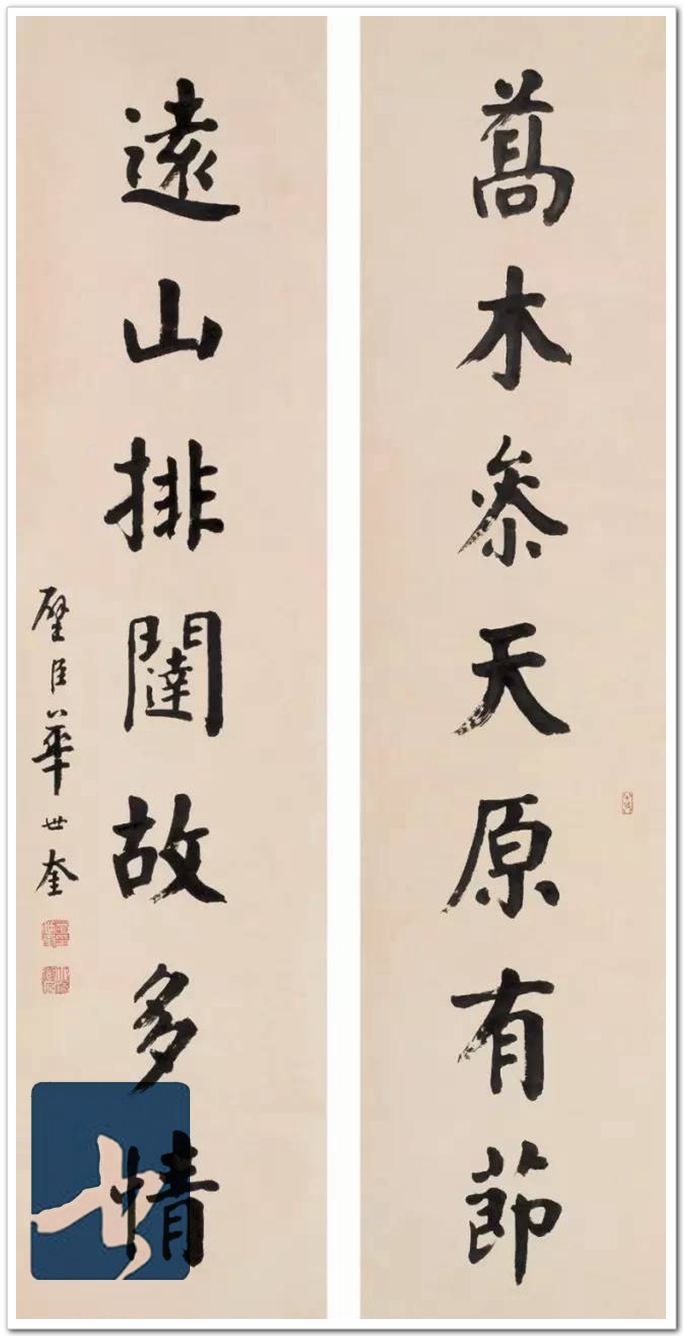 喬木參天原有節
遠山排闥故多情
璧臣華世奎